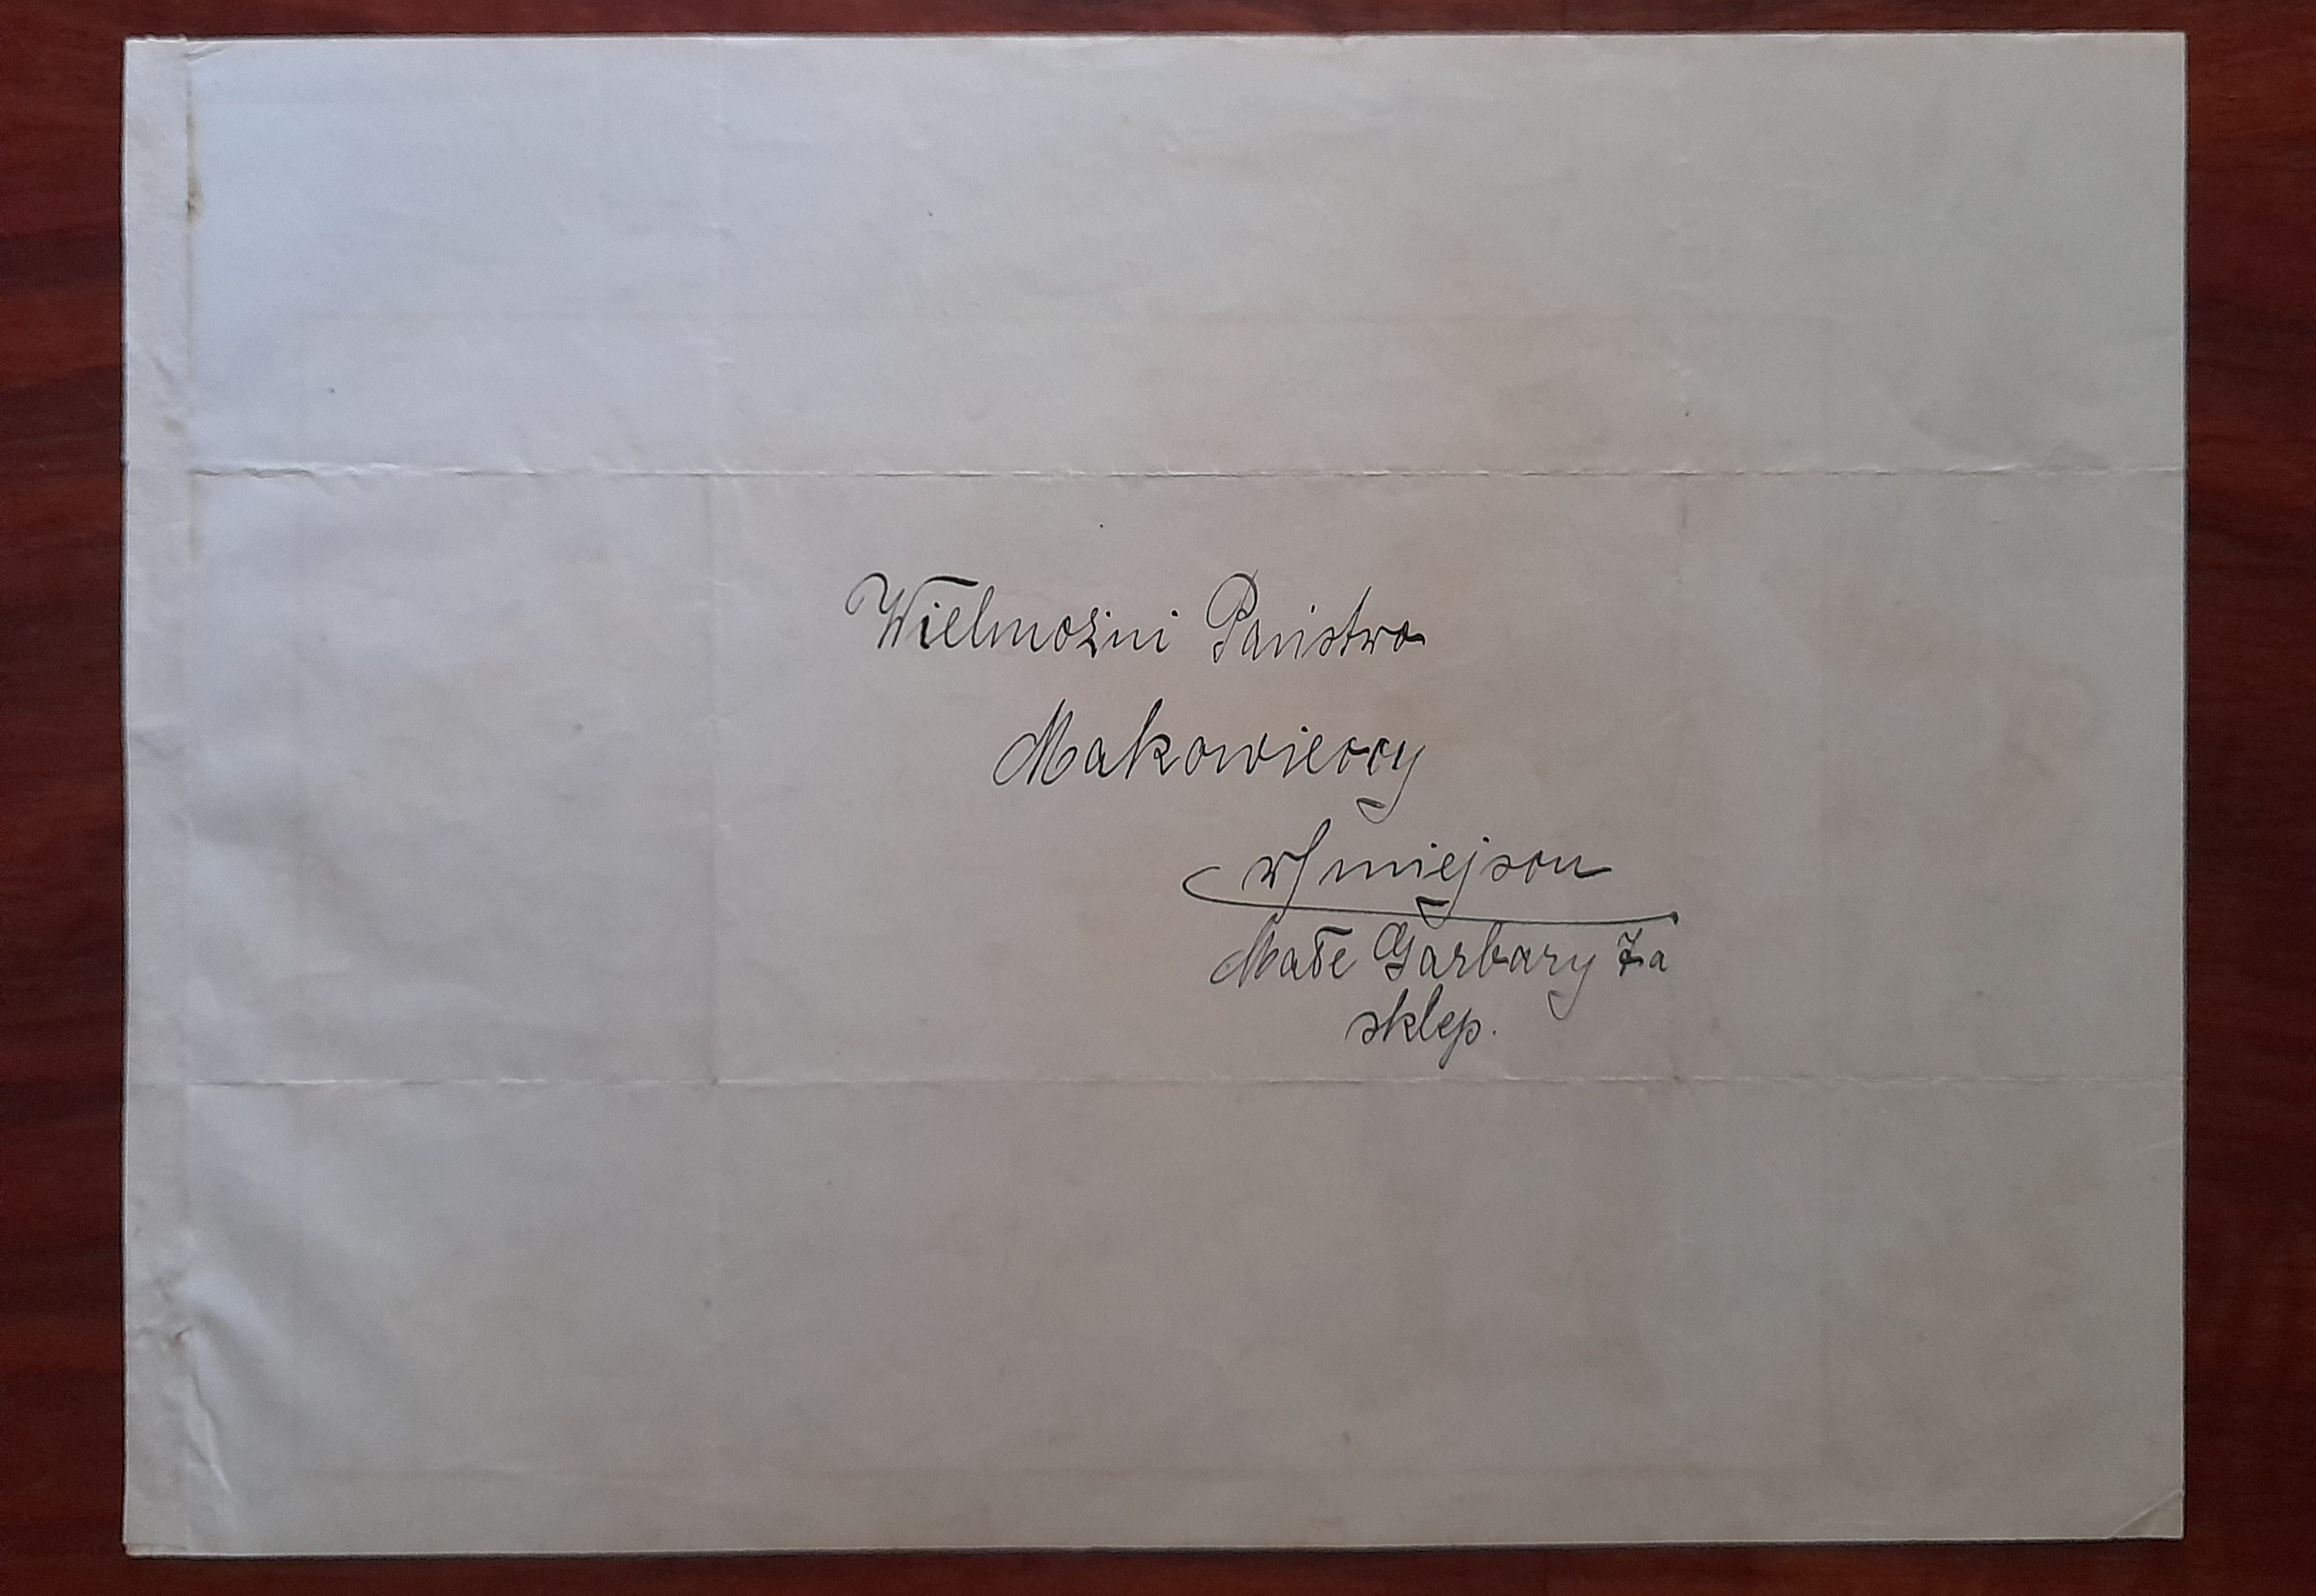 Wielmożni Państwo
Makowieccy
w/miejscu
Małe Garbary 7a
sklep.